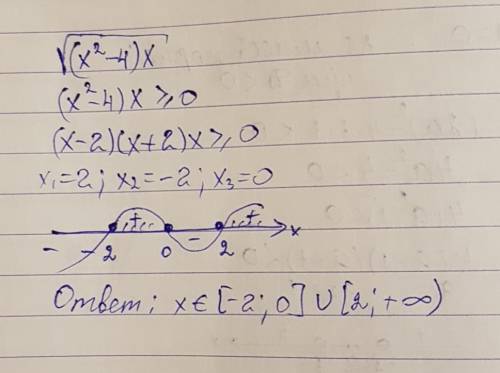 √(x²-4)x
(x²-4)x ≥ 0
(x-2)(x+2)x ≥ 0
x₁=2; x₂=-2; x₃=0
+ - + x
- -2 0 2
Ответ: x∈[-2;0]∪[2;+∞)